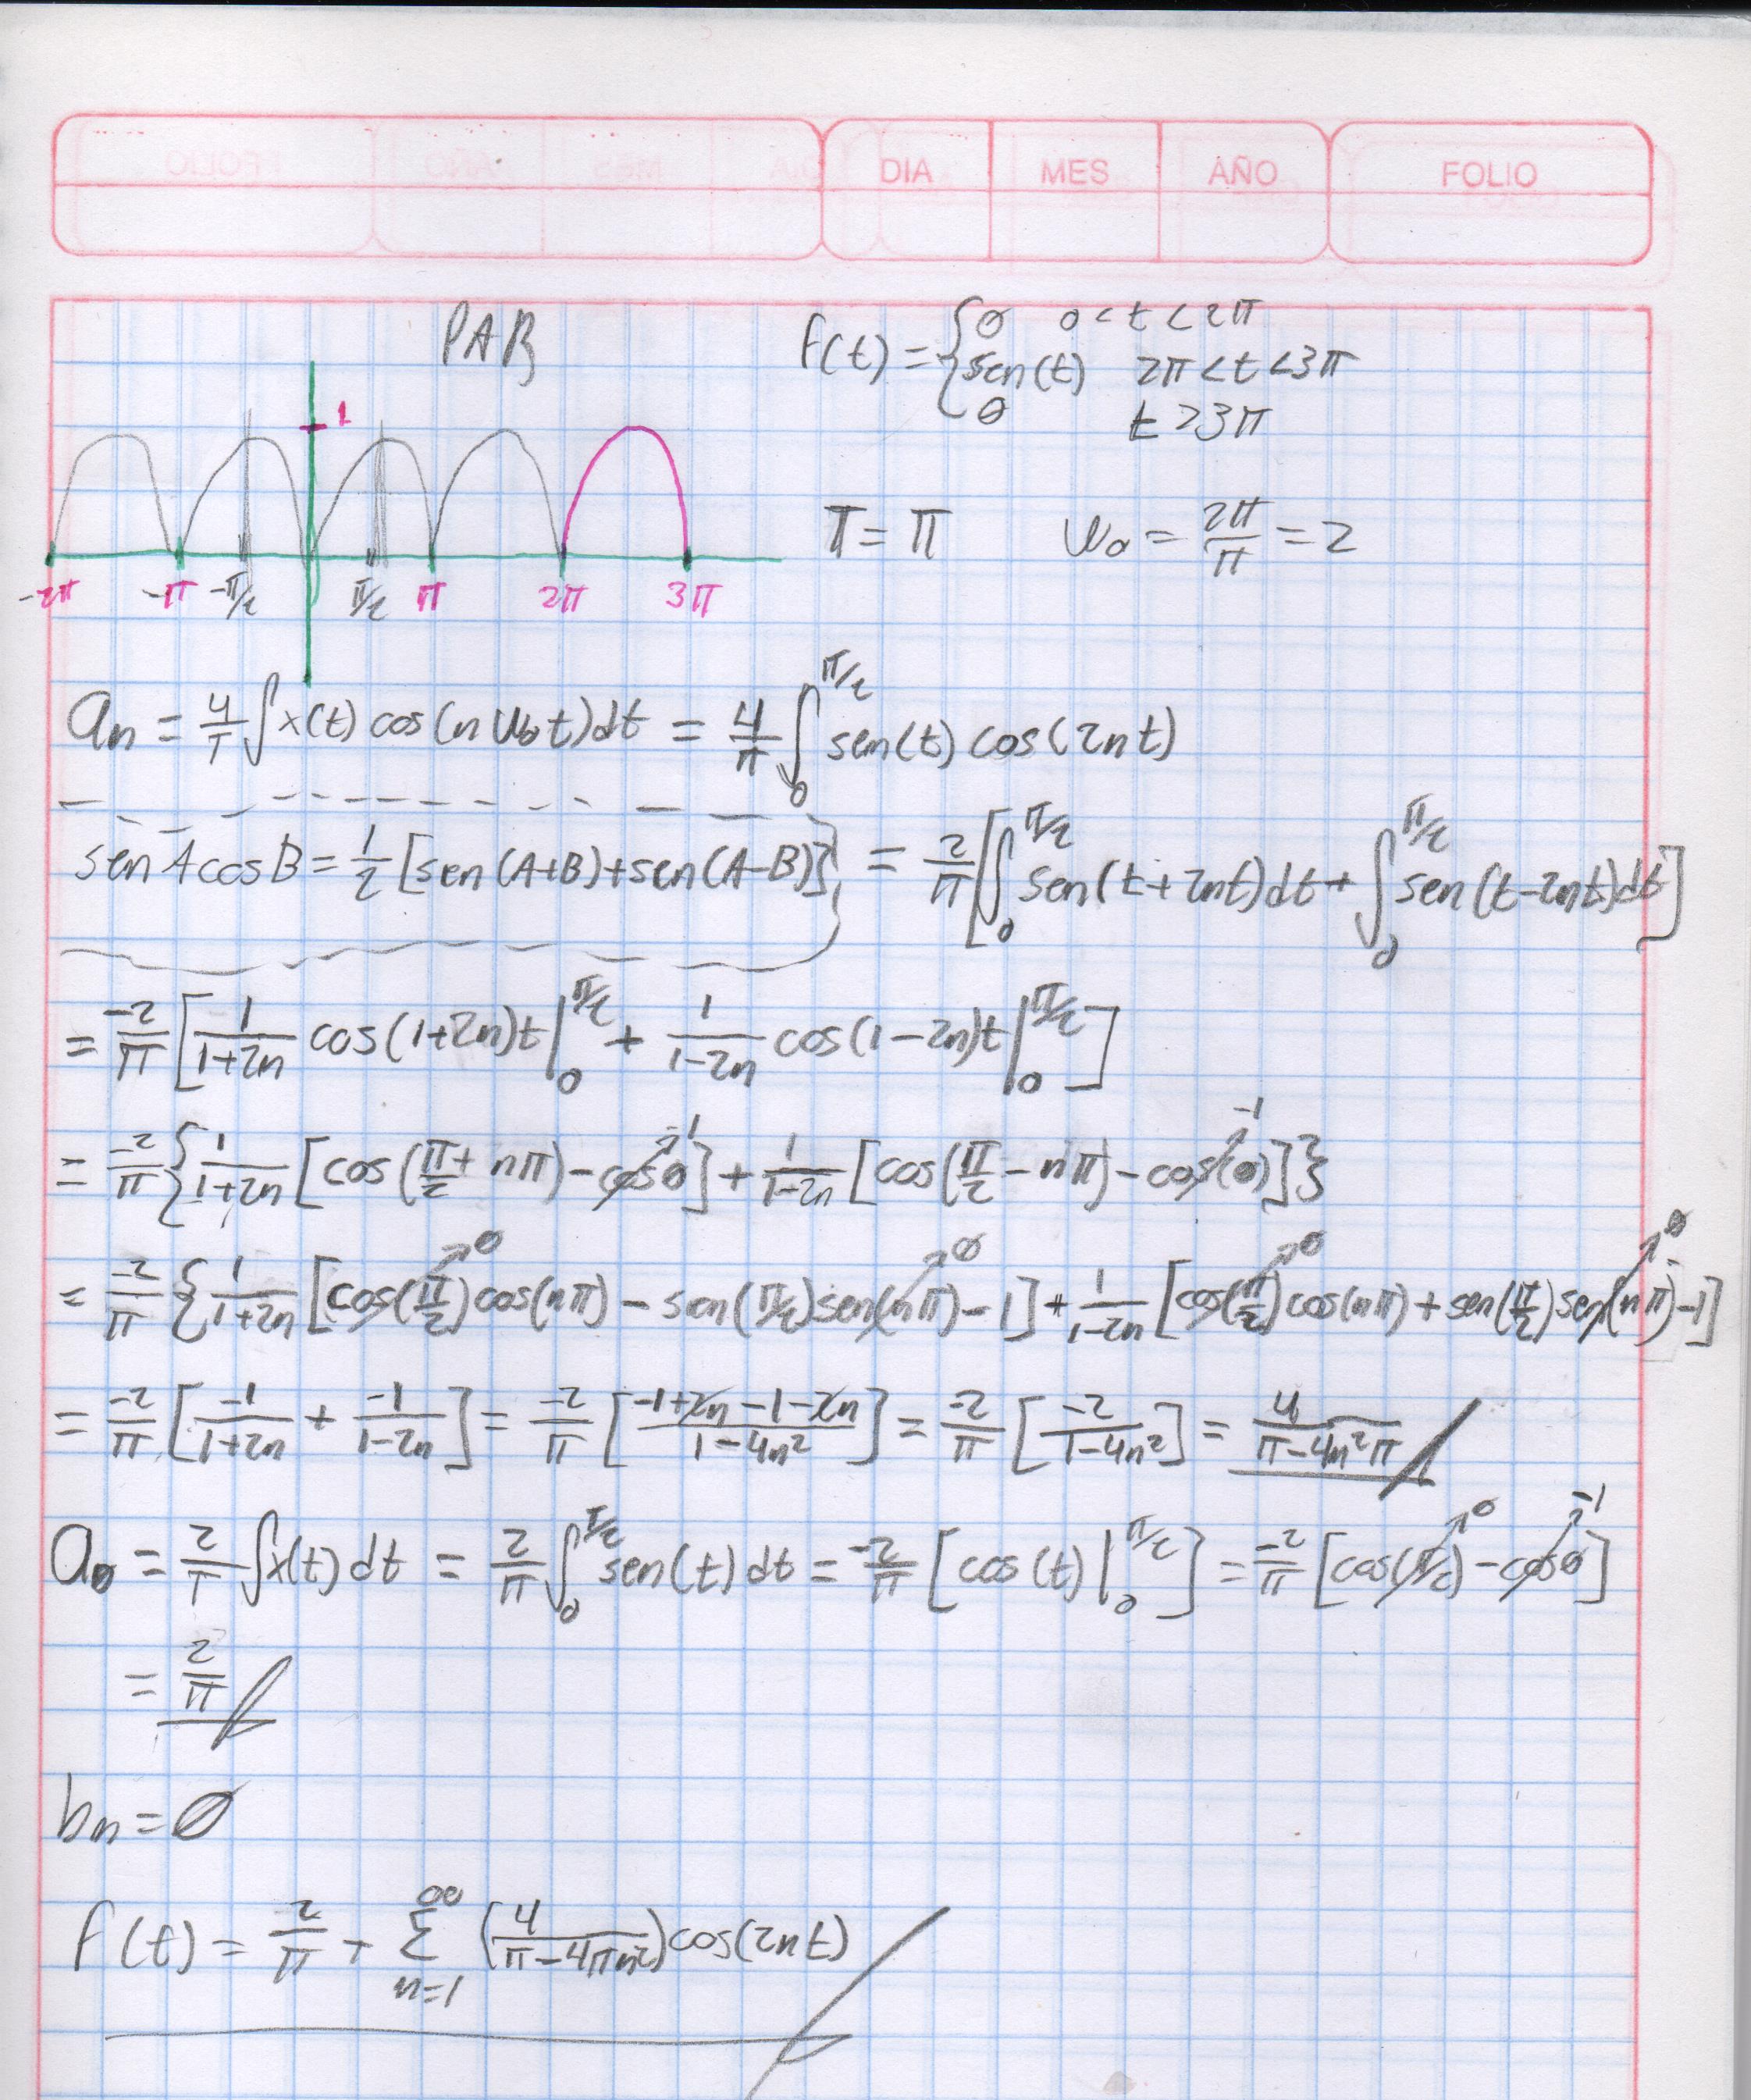 DIA MES AÑO FOLIO
PAR
f(t) = { 0 0 < t < 2π
sen(t) 2π < t < 3π
0 t > 3π
1
T = π ω₀ = 2π/π = 2
-2π -π -π/2 π/2 π 2π 3π
aₙ = 4/T ∫ x(t) cos(n ω₀ t) dt = 4/π ∫₀^{π/2} sen(t) cos(2nt)
sen A cos B = 1/2 [sen(A+B) + sen(A-B)] } = 2/π [∫₀^{π/2} sen(t+2nt)dt + ∫₀^{π/2} sen(t-2nt)dt]
= -2/π [1/(1+2n) cos(1+2n)t |₀^{π/2} + 1/(1-2n) cos(1-2n)t |₀^{π/2}]
= -2/π {1/(1+2n) [cos(π/2 + nπ) - cos0 → -1] + 1/(1-2n) [cos(π/2 - nπ) - cos(0) → -1]}
= -2/π {1/(1+2n) [cos(π/2) → 0 cos(nπ) - sen(π/2) sen(nπ) → 0 - 1] + 1/(1-2n) [cos(π/2) → 0 cos(nπ) + sen(π/2) sen(nπ) → 0 - 1]
= -2/π [-1/(1+2n) + -1/(1-2n)] = -2/π [(-1+2n-1-2n)/(1-4n²)] = -2/π [-2/(1-4n²)] = 4/(π-4n²π)
a₀ = 2/T ∫ x(t) dt = 2/π ∫₀^{π/2} sen(t) dt = -2/π [cos(t) |₀^{π/2}] = -2/π [cos(π/2) → 0 - cos0 → -1]
= 2/π
bₙ = 0
f(t) = 2/π + Σ_{n=1}^{∞} (4/(π-4πn²)) cos(2nt)